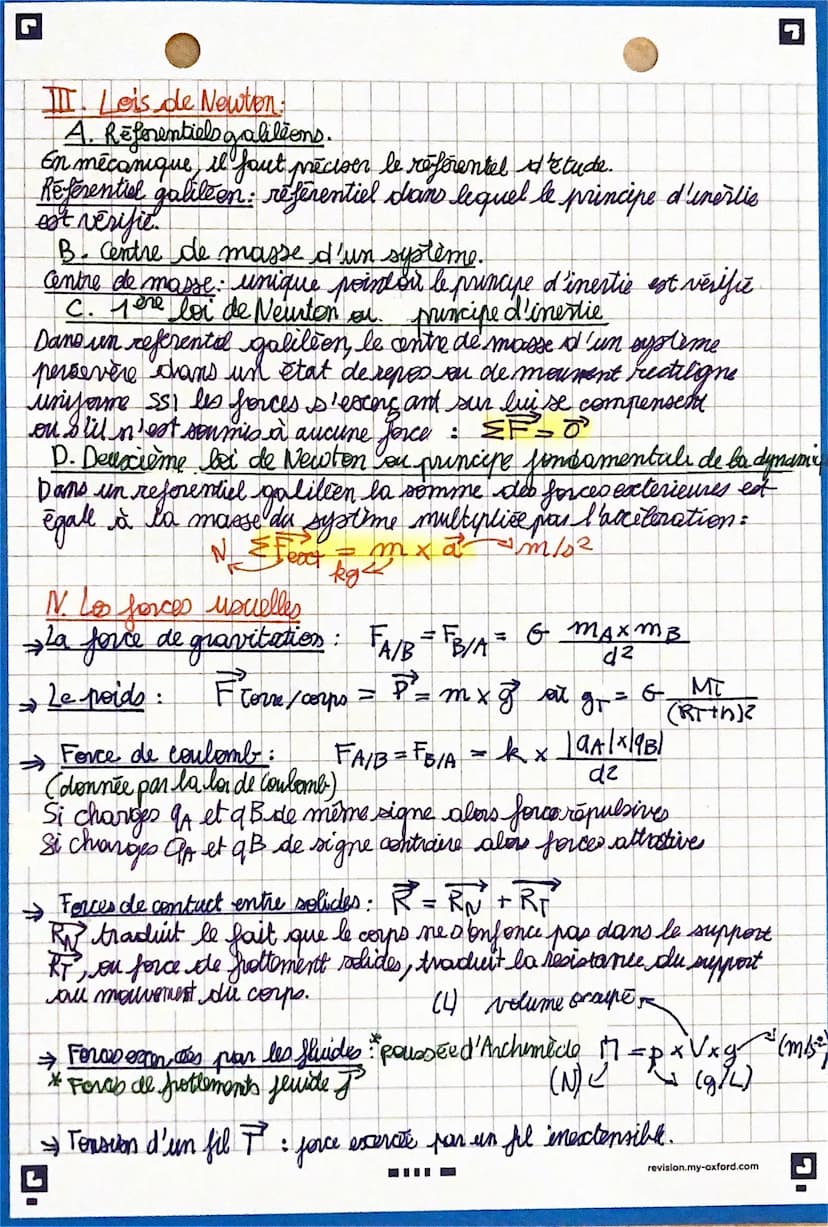 III. Lois de Newton:
A. Référentiels galiléens.
En mécanique, il faut préciser le référentiel d'étude.
Référentiel galiléen: référentiel dans lequel le principe d'inertie
est vérifié.
B. Centre de masse d'un système.
Centre de masse: unique point où le principe d'inertie est vérifié
C. 1ère loi de Newton ou principe d'inertie
Dans un referentiel galiléen, le centre de masse d'un système
persevère dans un état de repos ou de mouvment rectiligne
uniforme SSI les forces s'exerçant sur lui se compensent
ou s'il n'est soumis à aucune force : ΣF⃗ = 0⃗
D. Deuxième loi de Newton ou principe fondamentale de la dynami
Dans un referentiel galiléen la somme des forces exterieures est
égale à la masse du système multipliée par l'accélération:
N ΣF⃗ext = m x a⃗ → m/s²
kg
IV. Les forces usuelles
→ La force de gravitation : F A/B = F B/A = G mA x mB / d²
→ Le poids : F⃗ Terre/corps = P⃗ = m x g⃗ où gT = G MT / (RT+h)²
→ Force de coulomb : F A/B = F B/A = k x |qA|x|qB| / d²
(donnée par la loi de Coulomb)
Si charges qA et qB de même signe alors force répulsives
Si charges qA et qB de signe contraire alors forces attractive
→ Forces de contact entre solides : R⃗ = R⃗N + R⃗T
R⃗N traduit le fait que le corps ne s'enfonce pas dans le support
R⃗T, ou force de frottement solides, traduit la résistance du support
au mouvement du corps.
(L) volume
→ Forces exercées par les fluides : *poussée d'Archimède Π = ρ x V x g (m/s²)
* Forces de frottements fluide f⃗ (N) (g/L)
→ Tension d'un fil T⃗ : force exercée par un fil inextensible.
revision.my-oxford.com